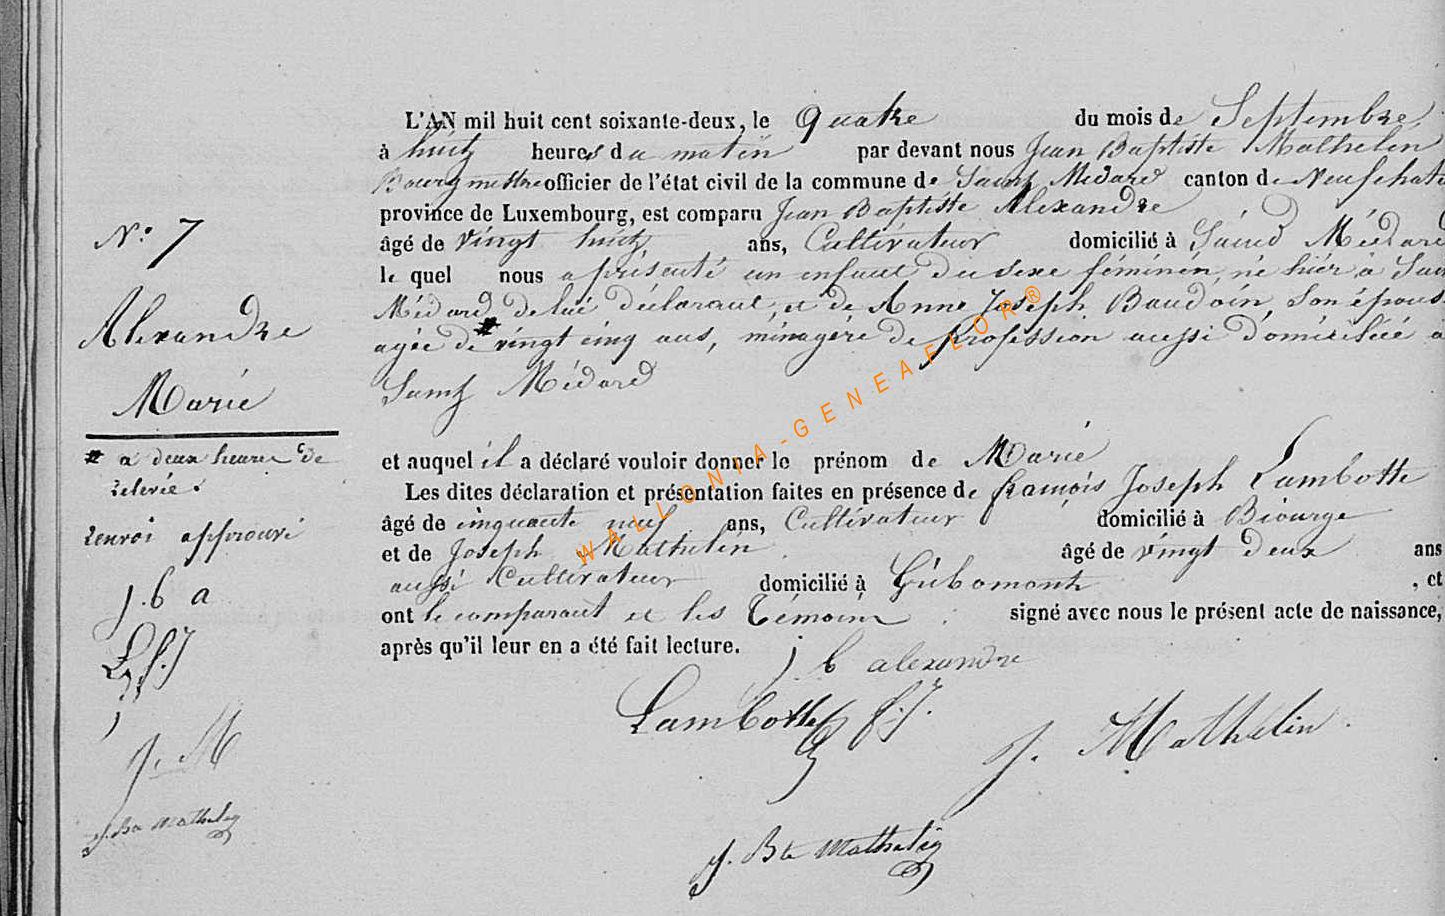 N° 7
Alexandre
Marie
# a deux heures de
relevée.
renvoi approuvé
j. b a
L, f. J
j. M
j. Bte Mathelin
L'AN mil huit cent soixante-deux, le quatre du mois de Septembre
à huit heures du matin par devant nous Jean Baptiste Mathelin
Bourgmettre officier de l'état civil de la commune de Saint Médard canton de Neufchate
province de Luxembourg, est comparu Jean Baptiste Alexandre
âgé de vingt huit ans, Cultivateur domicilié à Saint Médard
le quel nous a présenté un enfant du sexe féminin, né hier à Sain
Médard # de lui déclarant, et de Anne Joseph Baudoin son épouse
agée de vingt cinq ans, ménagère de profession aussi domiciliée a
Saint Médard
et auquel il a déclaré vouloir donner le prénom de Marie
Les dites déclaration et présentation faites en présence de françois Joseph Lambotte
âgé de cinquante neuf ans, Cultivateur domicilié à Biourge
et de Joseph Mathelin âgé de vingt deux ans
aussi Cultivateur domicilié à Gribomont , et
ont le comparant et les témoins signé avec nous le présent acte de naissance,
après qu'il leur en a été fait lecture.
j b alexandre
Lambotte f. J.
J. Mathelin.
j. Bte Mathelin
WALLONIA-GENEAFLOR®